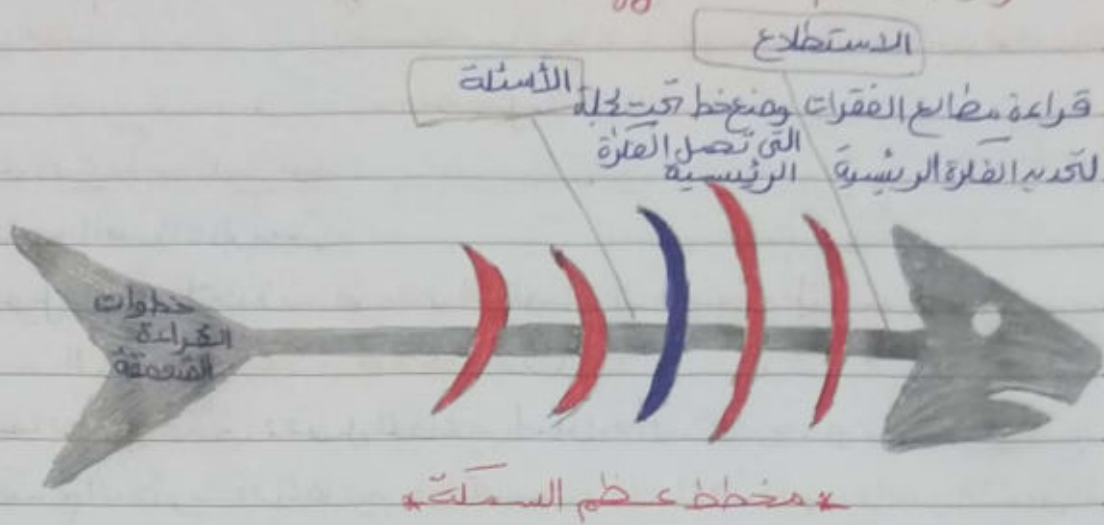 الاستطلاع
الأسئلة
قراءة مطالع الفقرات
لتحديد الفكرة الرئيسية
وضع خط تحت لجملة
التي تحمل الفكرة
الرئيسية
خطوات
القراءة
المتعمقة
* مخطط عظم السمكة *